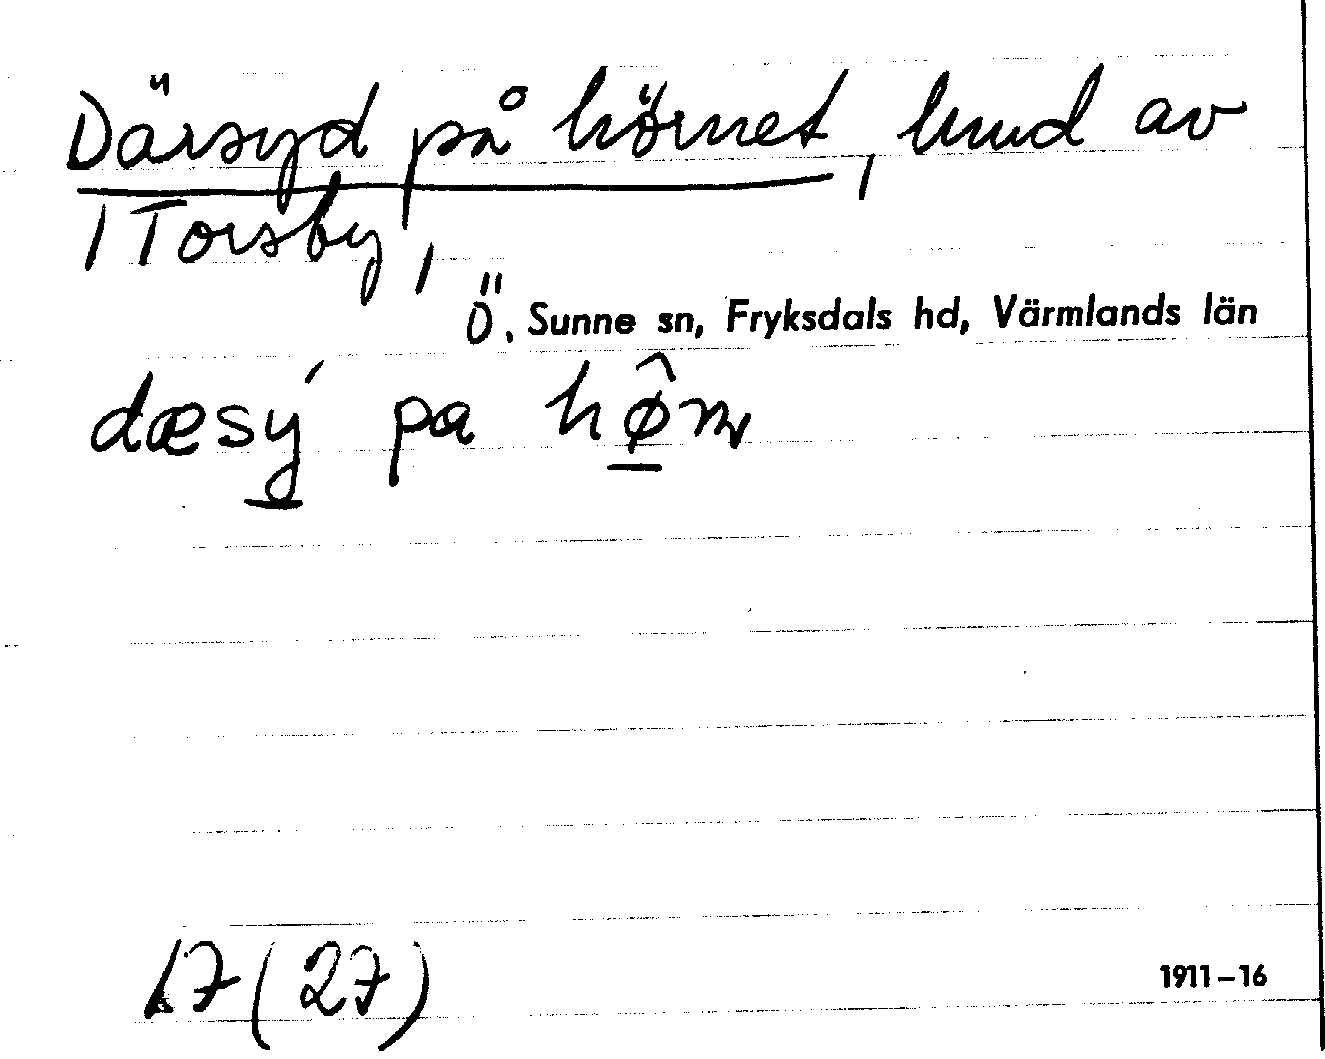 Därsyd på hörnet, hmd av
1 Torsby,
Ö. Sunne sn, Fryksdals hd, Värmlands län
dæsý pa
17 (27)
1911–16